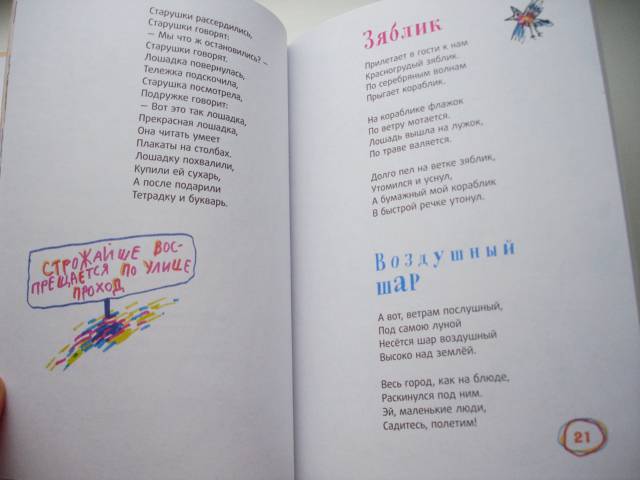 Старушки рассердились,
Старушки говорят:
— Мы что ж остановились? —
Старушки говорят.
Лошадка повернулась,
Тележка подскочила,
Старушка посмотрела,
Подружке говорит:
— Вот это так лошадка,
Прекрасная лошадка,
Она читать умеет
Плакаты на столбах.
Лошадку похвалили,
Купили ей сухарь,
А после подарили
Тетрадку и букварь.
СТРОЖАЙШЕ ВОС-
ПРЕЩАЕТСЯ ПО УЛИЦЕ
ПРОХОД
Зяблик
Прилетает в гости к нам
Красногрудый зяблик.
По серебряным волнам
Прыгает кораблик.
На кораблике флажок
По ветру мотается.
Лошадь вышла на лужок,
По траве валяется.
Долго пел на ветке зяблик,
Утомился и уснул,
А бумажный мой кораблик
В быстрой речке утонул.
Воздушный
шар
А вот, ветрам послушный,
Под самою луной
Несётся шар воздушный
Высоко над землёй.
Весь город, как на блюде,
Раскинулся под ним.
Эй, маленькие люди,
Садитесь, полетим!
21